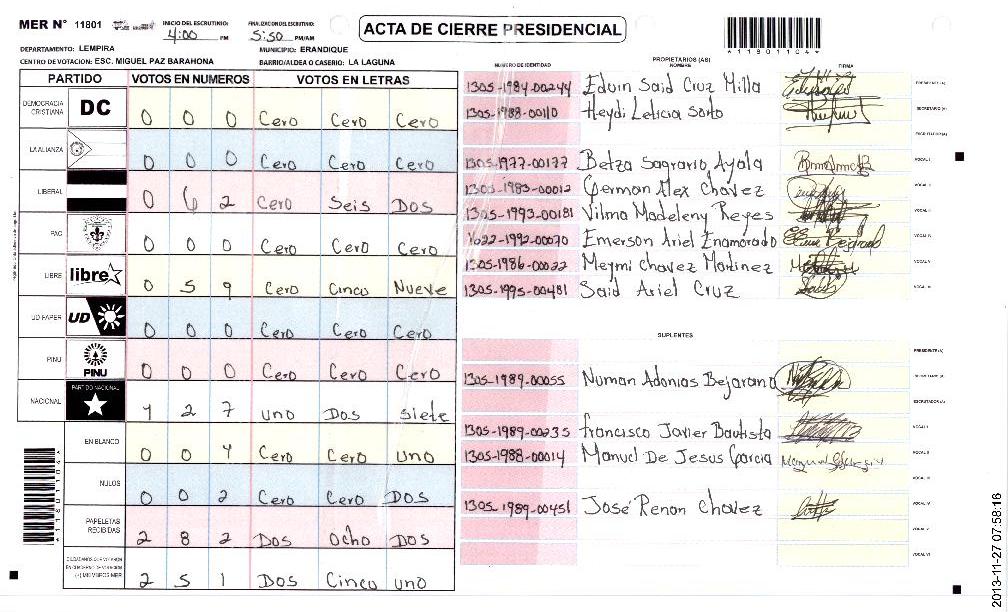 MER N° 11801
INICIO DEL ESCRUTINIO: 4:00 PM
FINALIZACION DEL ESCRUTINIO: 5:50 PM/AM
ACTA DE CIERRE PRESIDENCIAL
*11801104*
DEPARTAMENTO: LEMPIRA
MUNICIPIO: ERANDIQUE
CENTRO DE VOTACION: ESC. MIGUEL PAZ BARAHONA
BARRIO/ALDEA O CASERIO: LA LAGUNA
PARTIDO VOTOS EN NUMEROS VOTOS EN LETRAS
DEMOCRACIA CRISTIANA DC 0 0 0 Cero Cero Cero
LA ALIANZA 0 0 0 Cero Cero Cero
LIBERAL 0 6 2 Cero Seis Dos
PAC 0 0 0 Cero Cero Cero
LIBRE libre 0 5 9 Cero Cinco Nueve
UD FAPER UD 0 0 0 Cero Cero Cero
PINU PINU 0 0 0 Cero Cero Cero
NACIONAL PARTIDO NACIONAL 1 2 7 uno Dos Siete
EN BLANCO 0 0 1 Cero Cero uno
NULOS 0 0 2 Cero Cero Dos
PAPELETAS RECIBIDAS 2 8 2 Dos Ocho Dos
CIUDADANOS QUE VOTARON EN CUADERNO DE VOTACION (+) MIEMBROS MER 2 5 1 Dos Cinco uno
*11801104*
NUMERO DE IDENTIDAD PROPIETARIOS (AS) NOMBRE FIRMA
1305-1984-00244 Edvin Said Cruz Milla PRESIDENTE (A)
1305-1988-00110 Heydi Leticia Sorto SECRETARIO (A)
ESCRUTADOR (A)
1305-1977-00177 Betza Sagrario Ayala VOCAL I
1305-1983-00012 German Alex Chavez VOCAL II
1305-1993-00181 Vilma Madeleny Reyes VOCAL III
1622-1992-00070 Emerson Ariel Enamorado VOCAL IV
1305-1986-00022 Meymi Chavez Martinez VOCAL V
1305-1995-00481 Said Ariel Cruz VOCAL VI
SUPLENTES
PRESIDENTE (A)
1305-1989-00055 Numan Adonias Bejarano SECRETARIO (A)
ESCRUTADOR (A)
1305-1989-00235 Francisco Javier Bautista VOCAL I
1305-1988-00014 Manuel De Jesus Garcia VOCAL II
VOCAL III
1305-1989-00451 José Renan Chavez VOCAL IV
VOCAL V
VOCAL VI
2013-11-27 07:58:16